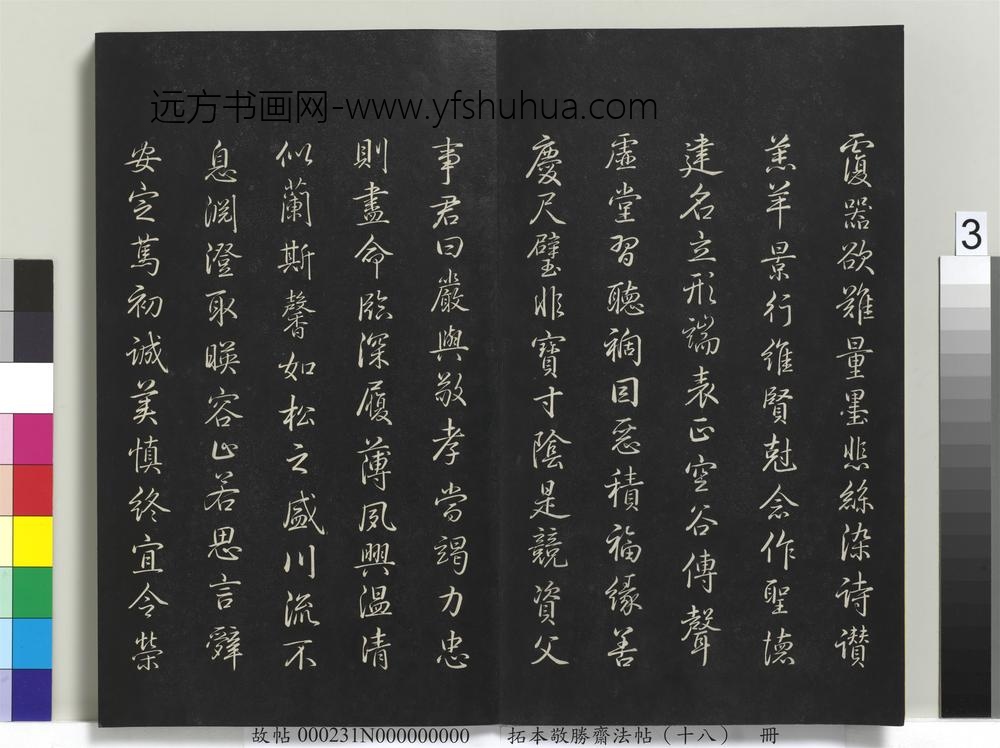 远方书画网-www.yfshuhua.com
覆器欲難量墨悲絲染詩讃
羔羊景行維賢尅念作聖徳
建名立形端表正空谷傳聲
虛堂習聽禍因惡積福緣善
慶尺璧非寶寸陰是競資父
事君曰嚴與敬孝當竭力忠
則盡命臨深履薄夙興溫清
似蘭斯馨如松之盛川流不
息淵澄取暎容止若思言辭
安定篤初誠美慎終宜令榮
3
故帖 000231N000000000 拓本敬勝齋法帖（十八） 冊